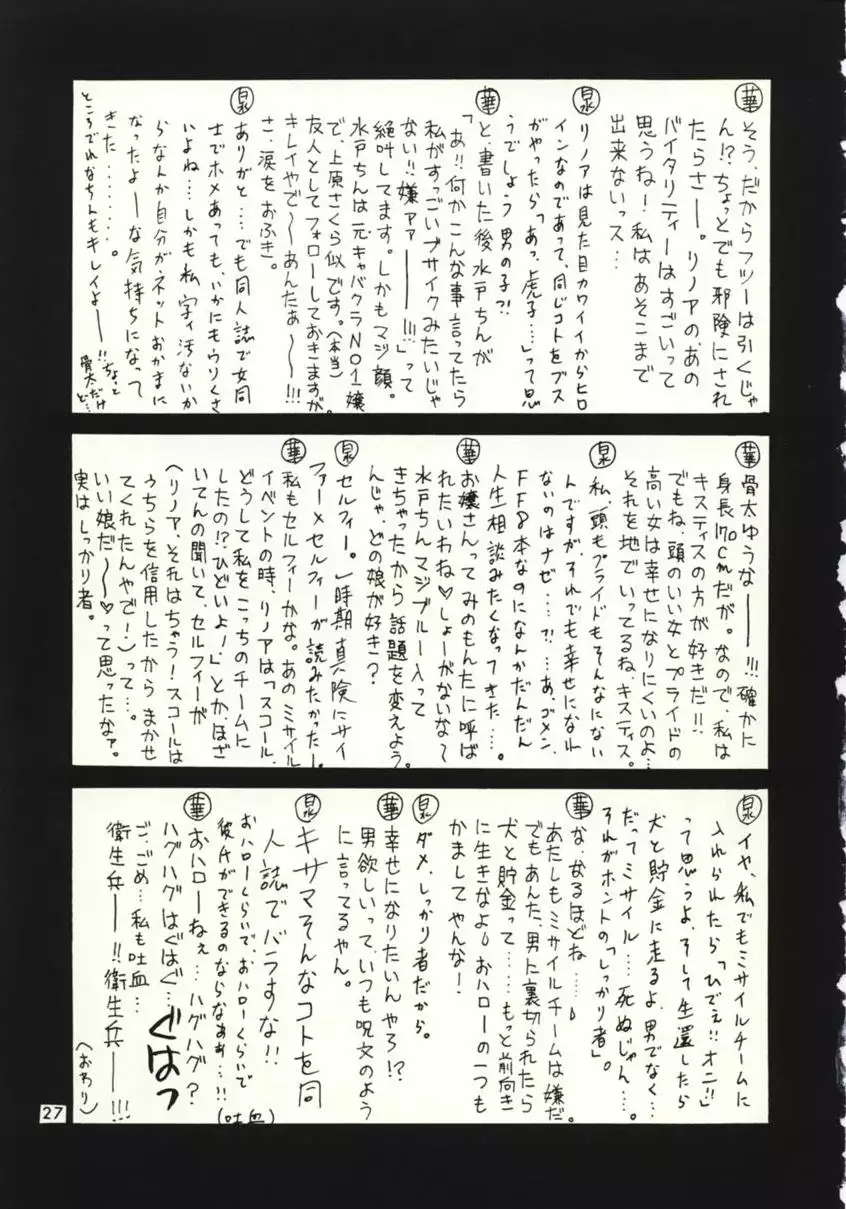 華 そう、だからフツーは引くじゃ
ん!? ちょっとでも邪険にされ
たらさー。リノアのあの
バイタリティーはすごいって
思うね!私はあそこまで
出来ないっス…
泉 リノアは見た目カワイイからヒロ
インなのであって、同じコトをブス
がやったら「あっ、虎子…」って思
うでしょう男の子?!
華 と、書いた後水戸ちんが
「あ!!何かこんな事言ってたら
私がすっごいブサイクみたいじゃ
ない!!嫌アァーーー!!!」って
絶叫してます。しかもマジ顔。
水戸ちんは元キャバクラNO1嬢
で、上原さくら似です。(本当)
友人としてフォローしておきますが
キレイやで〜〜あんたぁ〜〜!!!
さ、涙をおふき。
泉 ありがと…でも同人誌で女同
士でホメあっても、いかにもウソくさ
いよね…しかも私、字ィ汚ないか
らなんか自分がネットおかまに
なったよーな気持ちになって
きた………。
ところでれなちんもキレイよーー!!ちょっと
骨太だけど…
華 骨太ゆうなーー!!!確かに
身長170cmだが。なので、私は
キスティスの方が好きだ!!
でもね、頭のいい女とプライドの
高い女は幸せになりにくいのよ…
それを地でいってるね、キスティス。
泉 私、頭もプライドもそんなにない
んですが、それでも幸せになれ
ないのはナゼ…?!…あ、ゴメン、
FF8本なのになんかだんだん
人生相談みたくなってきた…。
華 お嬢さんってみのもんたに呼ば
れたいわね♡しょーがないなぁ〜
水戸ちんマジブルー入って
きちゃったから話題を変えよう。
んじゃ、どの娘が好き?
泉 セルフィー。一時期真険にサイ
ファー×セルフィーが読みたかったー。
華 私もセルフィーかな。あのミサイル
イベントの時、リノアは「スコール、
どうして私をこっちのチームに
したの!?ひどいよ!」とかほざ
いてんの聞いて、セルフィーが
(リノア、それはちゃう!スコールは
うちらを信用したからまかせ
てくれたんやで!)って…。
いい娘だ〜〜♡って思ったなァ。
実はしっかり者。
泉 イヤ、私でもミサイルチームに
入れられたら「ひでぇ!!オニ!!」
って思うよ、そして生還したら
犬と貯金に走るよ、男でなく…
だってミサイル…死ぬじゃん…。
それがホントの「しっかり者」。
華 な、なるほどね…。
あたしもミサイルチームは嫌だ。
でもあんた、男に裏切られたら
犬と貯金って……もっと前向き
に生きなよ。おハローの一つも
かましてやんな!
泉 ダメ、しっかり者だから。
華 幸せになりたいんやろ!?
男欲しいって、いつも呪文のよう
に言ってるやん。
泉 キサマそんなコトを同
人誌でバラすな!!
おハローくらいで、おハローくらいで
彼氏ができるのならなぁぁ…!!
(吐血)
華 おハローねぇ…ハグハグ?
ハグハグはぐはぐ…ぐはっ
ご、ごめ…私も吐血…
衛生兵ーー!!衛生兵ーー!!!
(おわり)
27